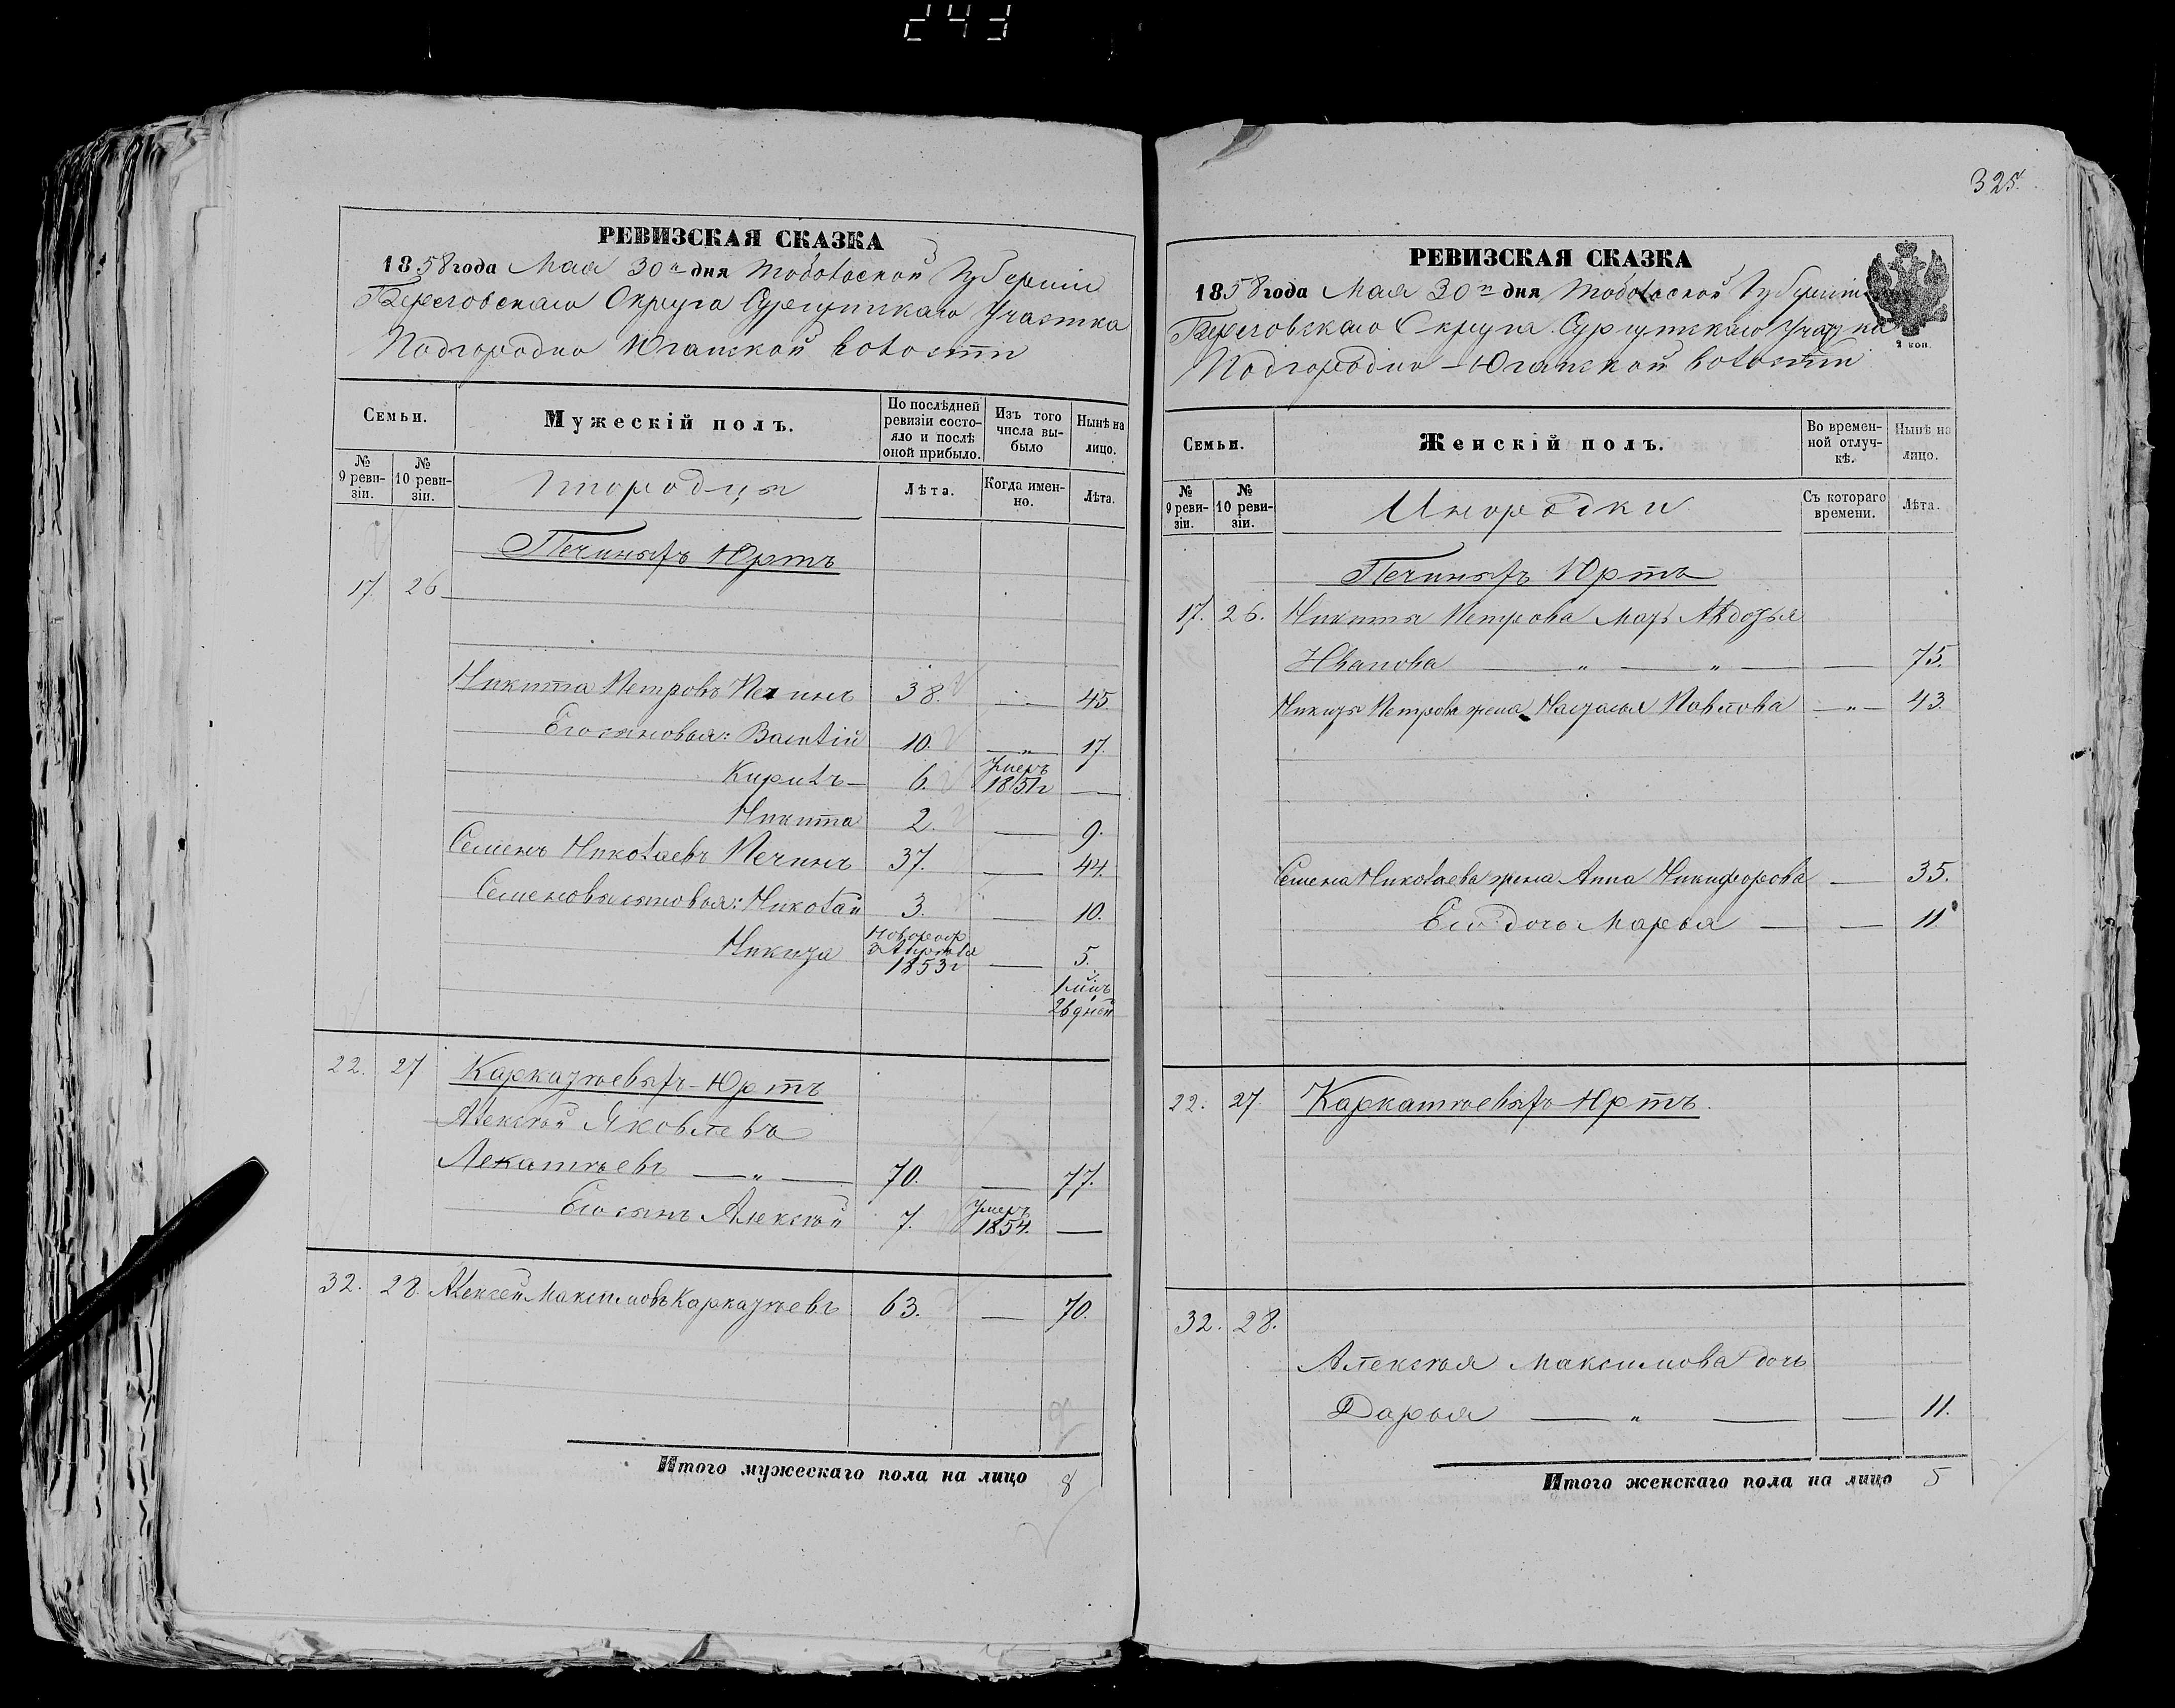 243
РЕВИЗСКАЯ СКАЗКА
1858 года Мая 30го дня Тобольской Губерніи
Березовскаго Округа Сургутскаго Участка
Подгородно Юганской волости
Семьи.
Мужескій полъ.
По послѣдней ревизіи состояло и послѣ оной прибыло.
Изъ того числа выбыло
Нынѣ на лицо.
№ 9 ревизіи.
№ 10 ревизіи.
Инородцы
Лѣта.
Когда именно.
Лѣта.
Печиныхъ Юртъ
17. 26
Никита Петровъ Печинъ 38. — 45
Его сыновья: Василій 10. — 17.
Кирилъ — 6. Умеръ 1851 г —
Никита 2. — 9.
Семенъ Николаевъ Печинъ 37. — 44.
Семеновы сыновья: Николай 3. — 10.
Никита Новорож 1853 г — 5.
1 мѣц
26 дней
22. 27 Каркатѣевыхъ-Юртъ
Алексѣй Яковлевъ
— „ — 70. — 77.
Его сынъ Алексѣй 7. Умеръ 1854. —
32. 28. Алексѣй Максимовъ Каркатѣевъ 63. — 70.
Итого мужескаго пола на лицо 8
325.
РЕВИЗСКАЯ СКАЗКА
1858 года Мая 30го дня Тобольской Губерніи
Березовскаго Округа Сургутскаго Участка
2 коп.
Подгородно-Юганской волости
Семьи.
Женскій полъ.
Во временной отлучкѣ.
Нынѣ на лицо.
№ 9 ревизіи.
№ 10 ревизіи.
Инородки
Съ котораго времени.
Лѣта.
Печиныхъ Юртъ
17. 26. Никиты Петрова мать Авдотья
Иванова — „ — „ — — 75.
Никиты Петрова жена Наталья Павлова — „ — 43.
Семена Николаева жена Анна Никифорова — 35.
Его дочь Марья — — 11
22. 27. Каркатѣевыхъ-Юртъ.
32. 28.
Алексѣя Максимова дочь
Дарья — „ — — 11.
Итого женскаго пола на лицо 5